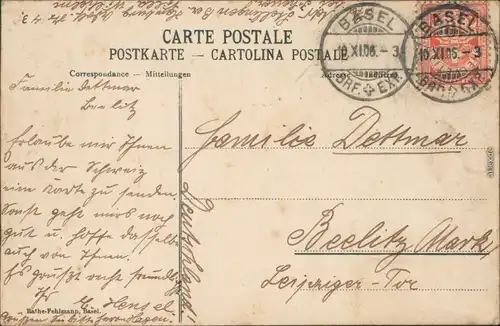 CARTE POSTALE
POSTKARTE — CARTOLINA POSTALE
Correspondance — Mitteilungen
BASEL
10.XI.06.-3
BRF. EXP.
BASEL
10.XI.06.-3
BRF. EXP.
Familie Dettmar
Beelitz
Erlaube mir Ihnen
aus der Schweiz
eine Karte zu senden
Sonst geht mirs noch
gut u. hoffe dasselbe
auch von Ihnen.
Es grüsst recht freundlich
Ihr
E. Hensel.
Rathe-Fehlmann, Basel.
Deutschland.
Familie Dettmar
Beelitz Mark
Leipziger-Tor